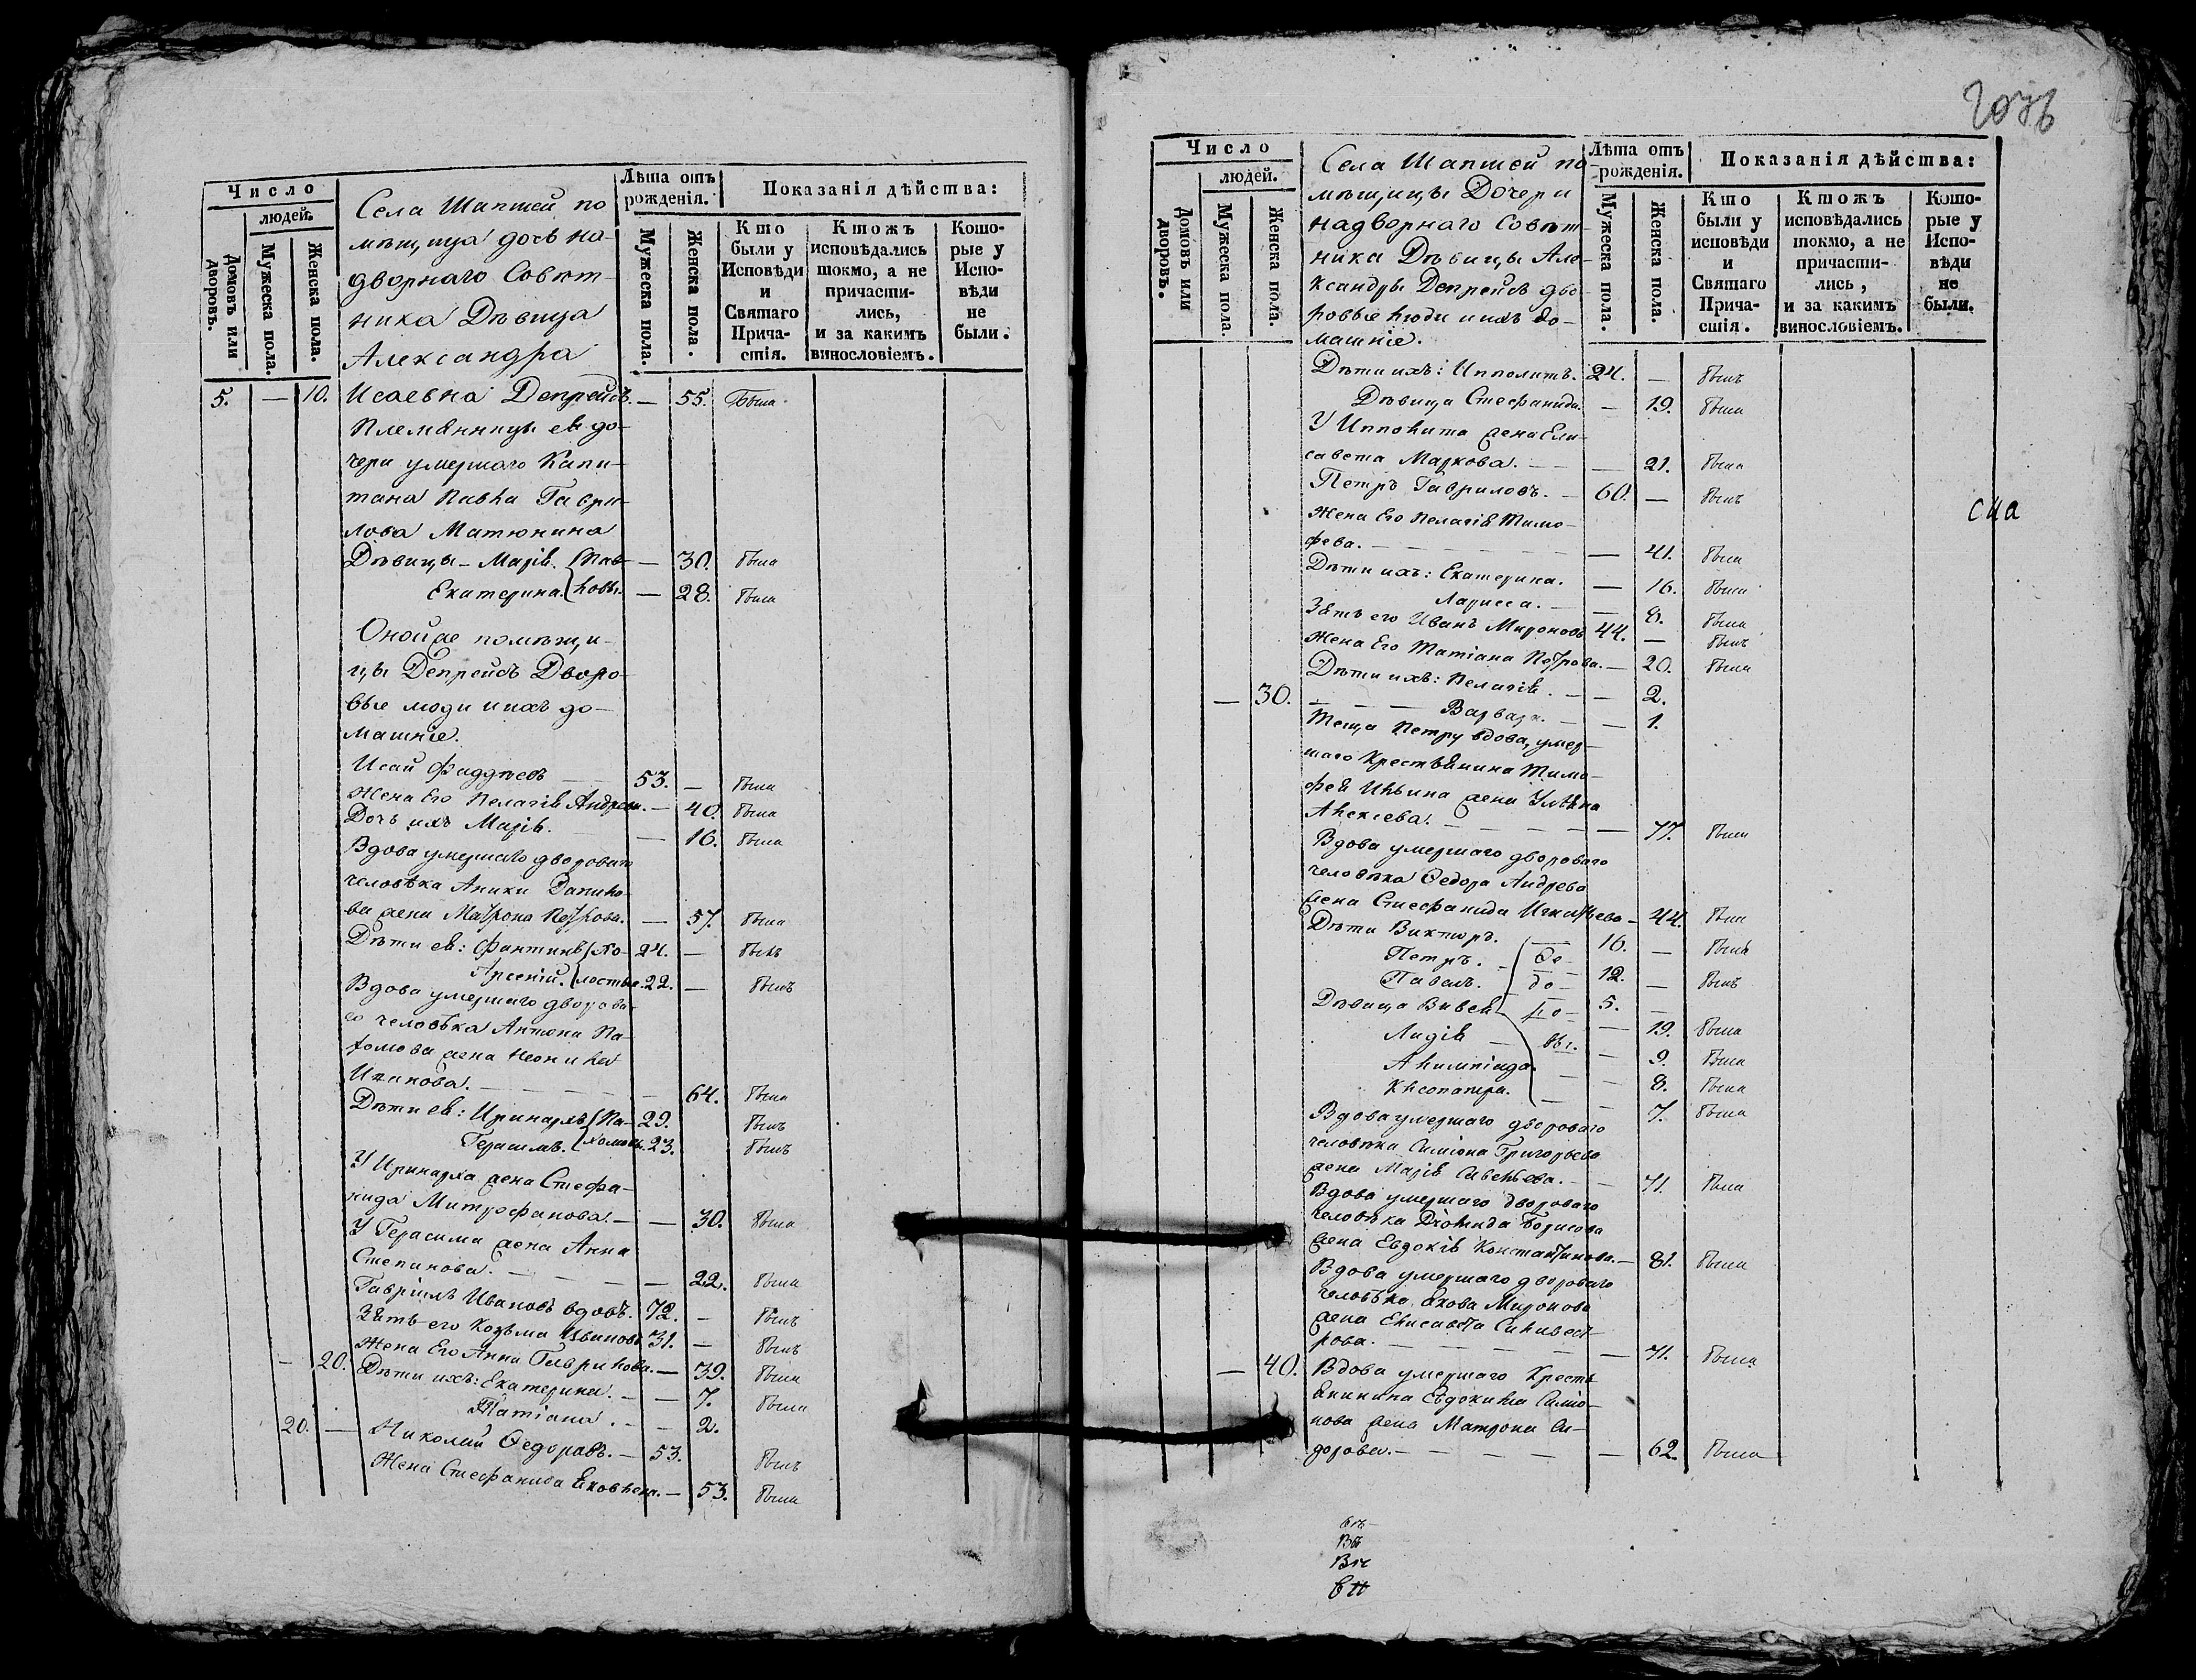 Число
людей.
Домовъ или дворовъ.
Мужеска пола.
Женска пола.
Села Шапшей по
мѣщица дочь на-
дворнаго Совѣт-
ника Дѣвица
Александра
Лѣта отъ рожденія.
Мужеска пола.
Женска пола.
Показанія дѣйства:
Кто были у Исповѣди и Святаго Причастія.
Ктожъ исповѣдались токмо, а не причастились, и за какимъ винословіемъ.
Которые у Исповѣди не были.
5. — 10. Исаевна Депрейсъ. — 55. Была
Племянницы ея до-
чери умершаго Капи-
тана Павла Гаври-
лова Матюнина
Дѣвицы – Марія. Пав- — 30. была
Екатерина. ловы. — 28. была
Онойже помѣщи-
цы Депрейсъ Дворо-
вые люди и ихъ до-
машніе.
Исай Фаддѣевъ 53. — была
Жена Его Пелагія Андреи. — 40. была
Дочь ихъ Марія. — 16. была
Вдова умершаго двороваго
человѣка Аники Данило-
ва жена Матрона Петрова. — 57. была
Дѣти ея: Фантинъ 24. — былъ
Арсеній. 22. — былъ
Вдова умершаго дворова-
го человѣка Антона Па-
хомова жена Неонила
64. была
Дѣти ея: Иринархъ Па- 29. былъ
Герасимъ. хомовы. 23. былъ
У Иринарха жена Стефа-
нида Митрофанова. — — 30. была
У Герасима жена Анна
Степанова. — 22. была
Гавріилъ Ивановъ вдовъ. 72. — былъ
Зять его Козьма Ивановъ 31. — былъ
Жена Его Анна Гаврилова. — 39. была
— 20. Дѣти ихъ: Екатерина. — — 7. была
Татіана. — — 2.
20. — Николай Ѳедоровъ. — 53. былъ
Жена Стефанида Яковлева. — 53. была
Число
людей.
Домовъ или дворовъ.
Мужеска пола.
Женска пола.
Села Шапшей по
мѣщицы Дочери
надворнаго Совѣт-
ника Дѣвицы Але-
ксандры Депрейсъ дво-
ровые люди и ихъ до-
машніе.
Лѣта отъ рожденія.
Мужеска пола.
Женска пола.
Показанія дѣйства:
Кто были у исповѣди и Святаго Причастія.
Ктожъ исповѣдались токмо, а не причастились, и за какимъ винословіемъ.
Которые у Исповѣди не были.
Дѣти ихъ: Ипполитъ. 24. — былъ
Дѣвица Стефанида. — 19. была
У Ипполита жена Ели-
савета Маркова. — — 21. была
Петръ Гавриловъ. — 60. — былъ
Жена Его Пелагія Тимо-
феева. — — 41. была
Дѣти ихъ: Екатерина. — 16. была
Ларисса. — — 8. была
Зять его Иванъ Мироновъ 44. — былъ
Жена Его Татіана Петрова. — 20. была
Дѣти ихъ: Пелагія. — — 2.
— 30. — Варвара. — — 1.
Теща Петру вдова, умер-
шаго Крестьянина Тимо-
фея Ильина жена Ульяна
Алексеева. — 77. была
Вдова умершаго двороваго
человѣка Ѳедора Андреева
жена Стефанида — 44. была
Дѣти Викторъ. — 16. — былъ
Петръ. – Ѳе- 12. — былъ
Павелъ. до- 5. —
Дѣвица Вивея ро- — 19. была
Лидія — вы. — 9. была
Алимпіада. — — 8. была
Клеопатра. — — 7. была
Вдова умершаго двороваго
человѣка Симіона Григорьева
жена Марія Савельева. — 71. была
Вдова умершаго двороваго
человѣка Діомида Борисова
жена Евдокія Константинова. — 81. была
Вдова умершаго двороваго
человѣка Якова Миронова
жена Елисавета Сильвест-
рова. — 71. была
— 40. Вдова умершаго Кресть
янина Евдокима Симіо-
нова жена Матрона Си-
дорова. — — 62. была